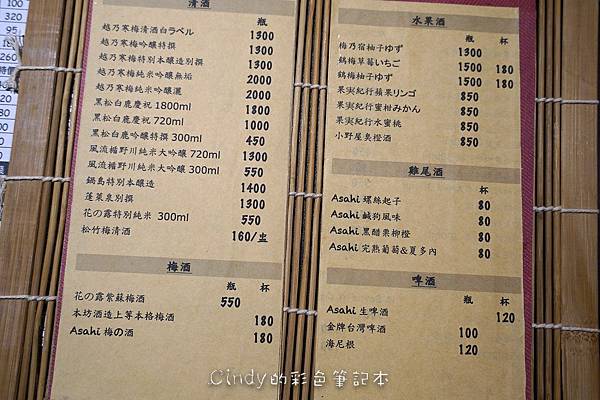 清酒
瓶
越乃寒梅清酒白ラベル 1300
越乃寒梅吟釀特撰 1300
越乃寒梅特別本釀造別撰 1300
越乃寒梅純米吟釀無垢 2000
越乃寒梅純米吟釀灑 2000
黑松白鹿慶祝 1800ml 1800
黑松白鹿慶祝 720ml 1000
黑松白鹿吟釀特撰 300ml 450
風流楯野川純米大吟釀 720ml 1300
風流楯野川純米大吟釀 300ml 550
鍋島特別本釀造 1400
蓬萊泉別撰 1300
花の露特別純米 300ml 550
松竹梅清酒 160/盅
梅酒
瓶 杯
花の露紫蘇梅酒 550
本坊酒造上等本格梅酒 180
Asahi 梅の酒 180
水果酒
瓶 杯
梅乃宿柚子ゆず 1300
鶴梅草莓いちご 1500 180
鶴梅柚子ゆず 1500 180
果実紀行蘋果リンゴ 850
果実紀行蜜柑みかん 850
果実紀行水蜜桃 850
小野屋臭橙酒 850
雞尾酒
杯
Asahi 螺絲起子 80
Asahi 鹹狗風味 80
Asahi 黑醋栗柳橙 80
Asahi 完熟葡萄&夏多內 80
啤酒
瓶 杯
Asahi 生啤酒 120
金牌台灣啤酒 100
海尼根 120
Cindy的彩色筆記本